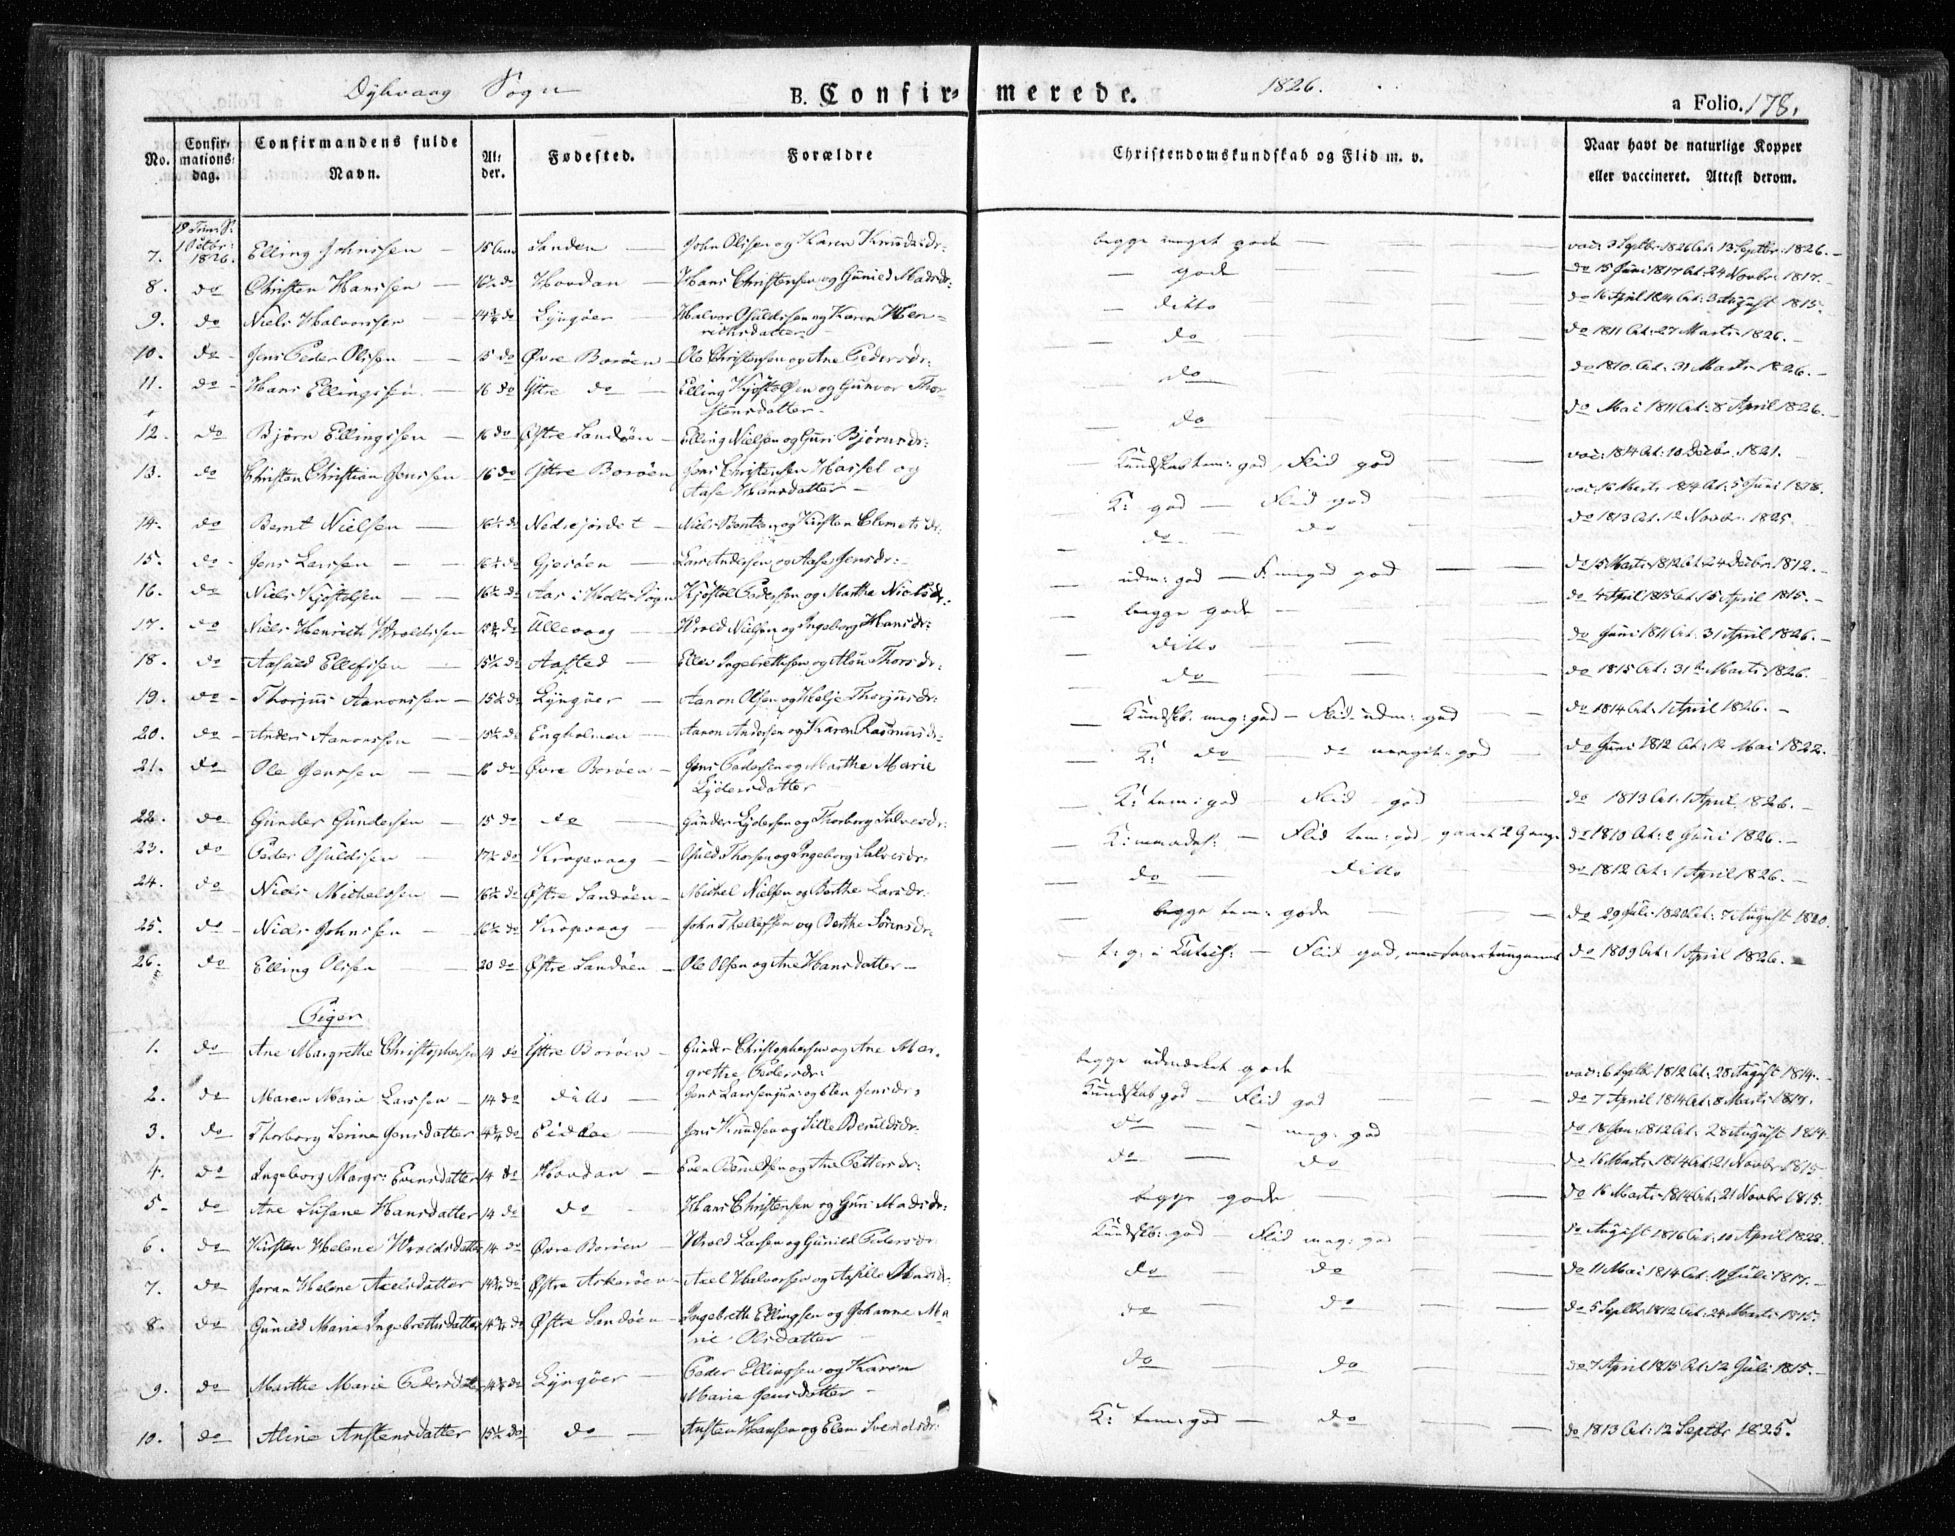 Dybvaag Sogn B. Confir= merede. 1826. a Folio. 178.
No. Confir= mations= dag. Confirmandens fulde Navn. Al= der. Fødested. Forældre Christendomskundskab og Flid m. v. Naar havt de naturlige Kopper eller vaccineret. Attest derom.
7. 1 Octbr: 1826. Elling Johnssen 15 Sanden John Olssen og Karen Knudsdr: begge meget gode vac: 3 Septbr 1826 At: 13 Septbr. 1826.
8. do Christen Hanssen 16½ do Hovdan Hans Christensen og Gunild Madsdr: gode do 15 Juni 1817 At: 24 Novbr 1817.
9. do Niels Halvorssen 14¾ do Lyngöer Halvor Osuldssen og Karen Hen= richsdatter ditto do 16 April 1814 At: 3 August 1815.
10. do Jens Peder Olssen 15 do Øvre Boröen Ole Christensen og Ane Pedersdr: do do 1811 At: 27 Marts 1826.
11. do Hans Ellingssen 16 do Yttre do Elling Kjøstolsen og Gunvor Thor= stensdatter do do 1810 At: 31 Marts 1826.
12. do Björn Ellingssen 16 do Østre Sandöen Elling Nielsen og Guri Björnsdr: do do Mai 1811 At: 8 April 1826.
13. do Christen Christian Jenssen 16 do Yttre Boröen Jens Christensen Hassel og Aase Hansdatter Kundskab tem: god, Flid god vac: 1814 At: 10 Decbr. 1821.
14. do Bernt Nielsen 16½ do Nedrejordet Niels Bentzen og Kirsten Clemetsdr: K: god Flid god vac: 16 Marts 1814 At: 5 Juni 1818.
15. do Jens Larssen 16½ do Gjeröen Lars Andersen og Aase Jensdr: do do do 1813 At: 12 Novbr. 1825.
16. do Niels Kjöstelsen 16½ do Aas i Holts Sogn Kjöstel Pedersen og Marthe Nielsdr: udm: god F: meget god do 15 Marts 1812 At: 24 Decbr: 1812.
17. do Niels Henrich Wroldssen 15¾ do Ullevaag Wrold Nielsen og Ingeborg Hansdr: begge gode do 4 April 1815 At: 15 April 1815.
18. do Aasuld Ellefssen 15½ do Aasted Ellev Ingebrethsen og Thorsdr: ditto do Juni 1811 At: 31 April 1826.
19. do Thorjus Aanonssen 15½ do Lyngöer Aanon Olsen og Helje Thorjusdr: do do 1815 At: 31te Marts 1826.
20. do Anders Aanonssen 15½ do Engholmen Aanon Andersen og Karen Rasmusdr: Kundsk: meg: god Flid udm: god do 1814 At: 1 April 1826.
21. do Ole Jenssen 16 do Øvre Boröen Jens Pedersen og Marthe Marie Lydersdatter K: do do meget god do Juni 1812 At: 12 Mai 1822.
22. do Gunder Gundersen 15 do do Gunder Lydersen og Thorborg Salvesdr: K: tem: god Flid god do 1813 At: 1 April 1826.
23. do Peder Osuldssen 17½ do Kragevaag Osuld Thorsen og Ingeborg Salvesdr: K: maadel: Flid tem: god, gaaet 2 Gange do 1810 At: 2 Juni 1826.
24. do Niels Michelssen 16½ do Østre Sandöen Michel Nielsen og Berthe Larsdr: do ditto do 1812 At: 1 April 1826.
25. do Niels Johnssen 16½ do Kragvaag John Thellefsen og Berthe Sörensdr: begge tem: gode do 29 Juli 1820 At: 7 August 1820.
26. do Elling Olssen 20 do Østre Sandöen Ole Olsen og Ane Hansdatter t: g: i Flid god, do 1809 At: 1 April 1826.
Piger
1. do Ane Margrethe Christophersen 14 do Yttre Boröen Gunder Christophersen og Ane Mar= grethe Pedersdr: begge udmærket gode vac: 6 Septbr 1812 At: 28 August 1814.
2. do Maren Marie Larssen 14 do ditto Jens Larssen jun: og Elen Jensdr: Kundskab god Flid god do 7 April 1814 At: 8 Marts 1817.
3. do Thorborg Serine Jensdatter 14¾ do Eidboe Jens Knudsen og Sille Beruldsdr: do meg: god do 18 Jan: 1812 At: 28 August 1814.
4. do Ingeborg Margr: Evensdatter 14 do Hovdan Even Beruldsen og Ane Pettersdr: do do do 16 Marts 1814 At: 21 Novbr 1815.
5. do Ane Susane Hansdatter 14 do do Hans Christensen og Guri Madsdr: begge gode do 16 Marts 1814 At: 21 Novbr 1815.
6. do Kirsten Helene Wroldsdatter 14 do Øvre Boröen Wrold Larsen og Gunild Pedersdr: Kundsk: god Flid meg: god do August 1816 At: 10 April 1822.
7. do Joran Helene Axelsdatter 14¾ do Østre Askeröen Axel Halvorsen og do do do 11 Mai 1814 At: 11 Juli 1817.
8. do Gunild Marie Ingebrethsdatter 14¾ do Østre Sandöen Ingebreth Ellingsen og Johanne Ma= rie Olsdatter do do do 5 Septbr 1812 At: 24 Marts 1815.
9. do Marthe Marie Pedersdatter 14¾ do Lyngöer Peder Ellingsen og Karen Marie Jensdatter do do do 7 April 1815 At: 12 Juli 1815.
10. do Aline Anstensdatter 15½ do do Ansten Hansen og Elen Svendsdr: K: tem: god do do 1813 At: 12 Septbr 1825.